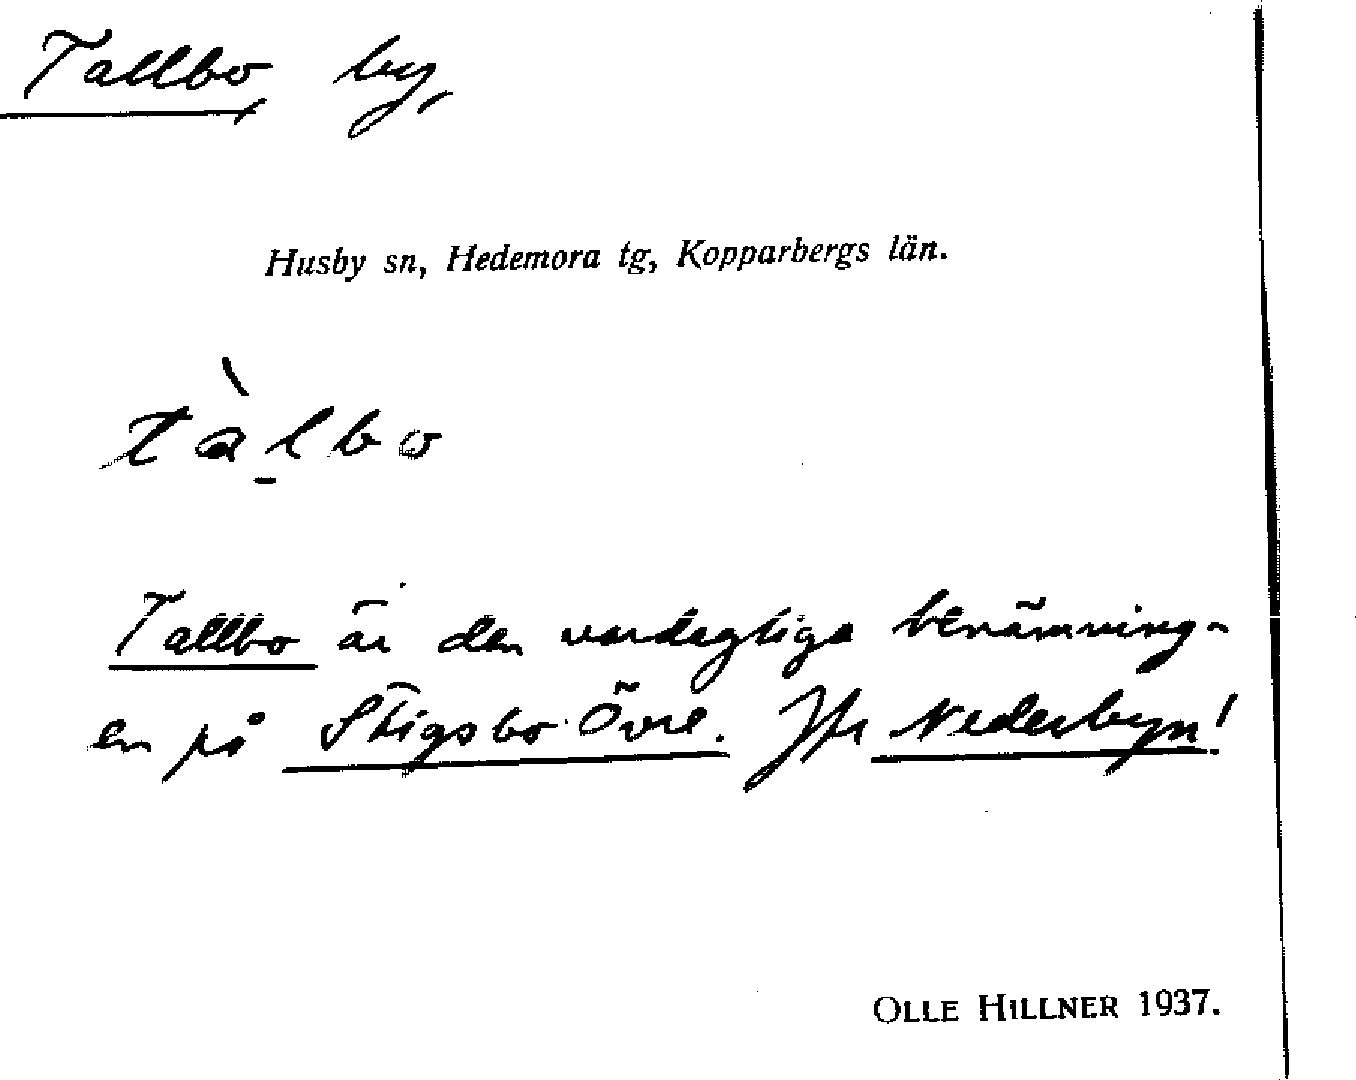 Tallbo, by,
Husby sn, Hedemora tg, Kopparbergs län.
tàl̠bo
Tallbo är den vardagliga benämning-
en på Stigsbo Övre. Jfr Nederbyn!
OLLE HILLNER 1937.